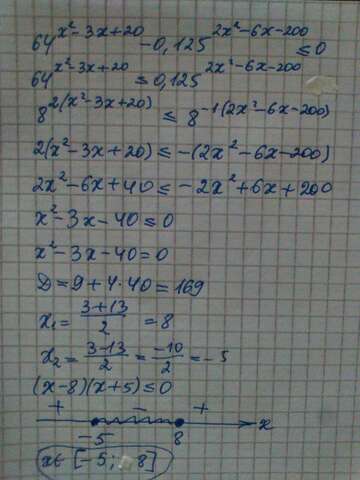 64^(x²-3x+20) - 0,125^(2x²-6x-200) ≤ 0
64^(x²-3x+20) ≤ 0,125^(2x²-6x-200)
8^(2(x²-3x+20)) ≤ 8^(-1(2x²-6x-200))
2(x²-3x+20) ≤ -(2x²-6x-200)
2x²-6x+40 ≤ -2x²+6x+200
x²-3x-40 ≤ 0
x²-3x-40 = 0
D = 9+4·40 = 169
x₁ = (3+13)/2 = 8
x₂ = (3-13)/2 = -10/2 = -5
(x-8)(x+5) ≤ 0
+ - +
-5 8 x
x ∈ [-5; 8]